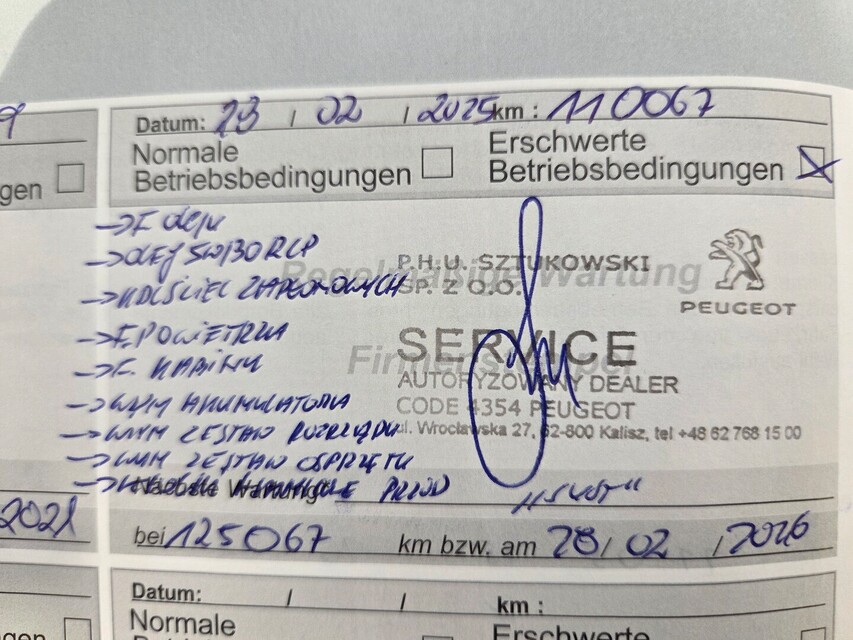 Datum: 23 / 02 / 2025 km : 110067
gen
Normale
Betriebsbedingungen
Erschwerte
Betriebsbedingungen
→ F. OLEJU
→ OLEJ 5W/30 RCP
→ 4 ŚWIEC ZAPŁONOWYCH
→ F. POWIETRZA
→ F. KABINY
→ WYM AKUMULATORA
→ WYM ZESTAW ROZRZĄDU
→ WYM ZESTAW OSPRZĘTU
→ PRZÓD
Regelmäßige Wartung
Firmenstempel
P.H.U. SZTUKOWSKI
SP. Z O.O.
SERVICE
AUTORYZOWANY DEALER
CODE 4354 PEUGEOT
ul. Wrocławska 27, 62-800 Kalisz, tel +48 62 768 15 00
PEUGEOT
Nächste Wartung
2021
bei 125067 km bzw. am 28 / 02 / 2026
Datum: / / km :
gen
Normale
Erschwerte